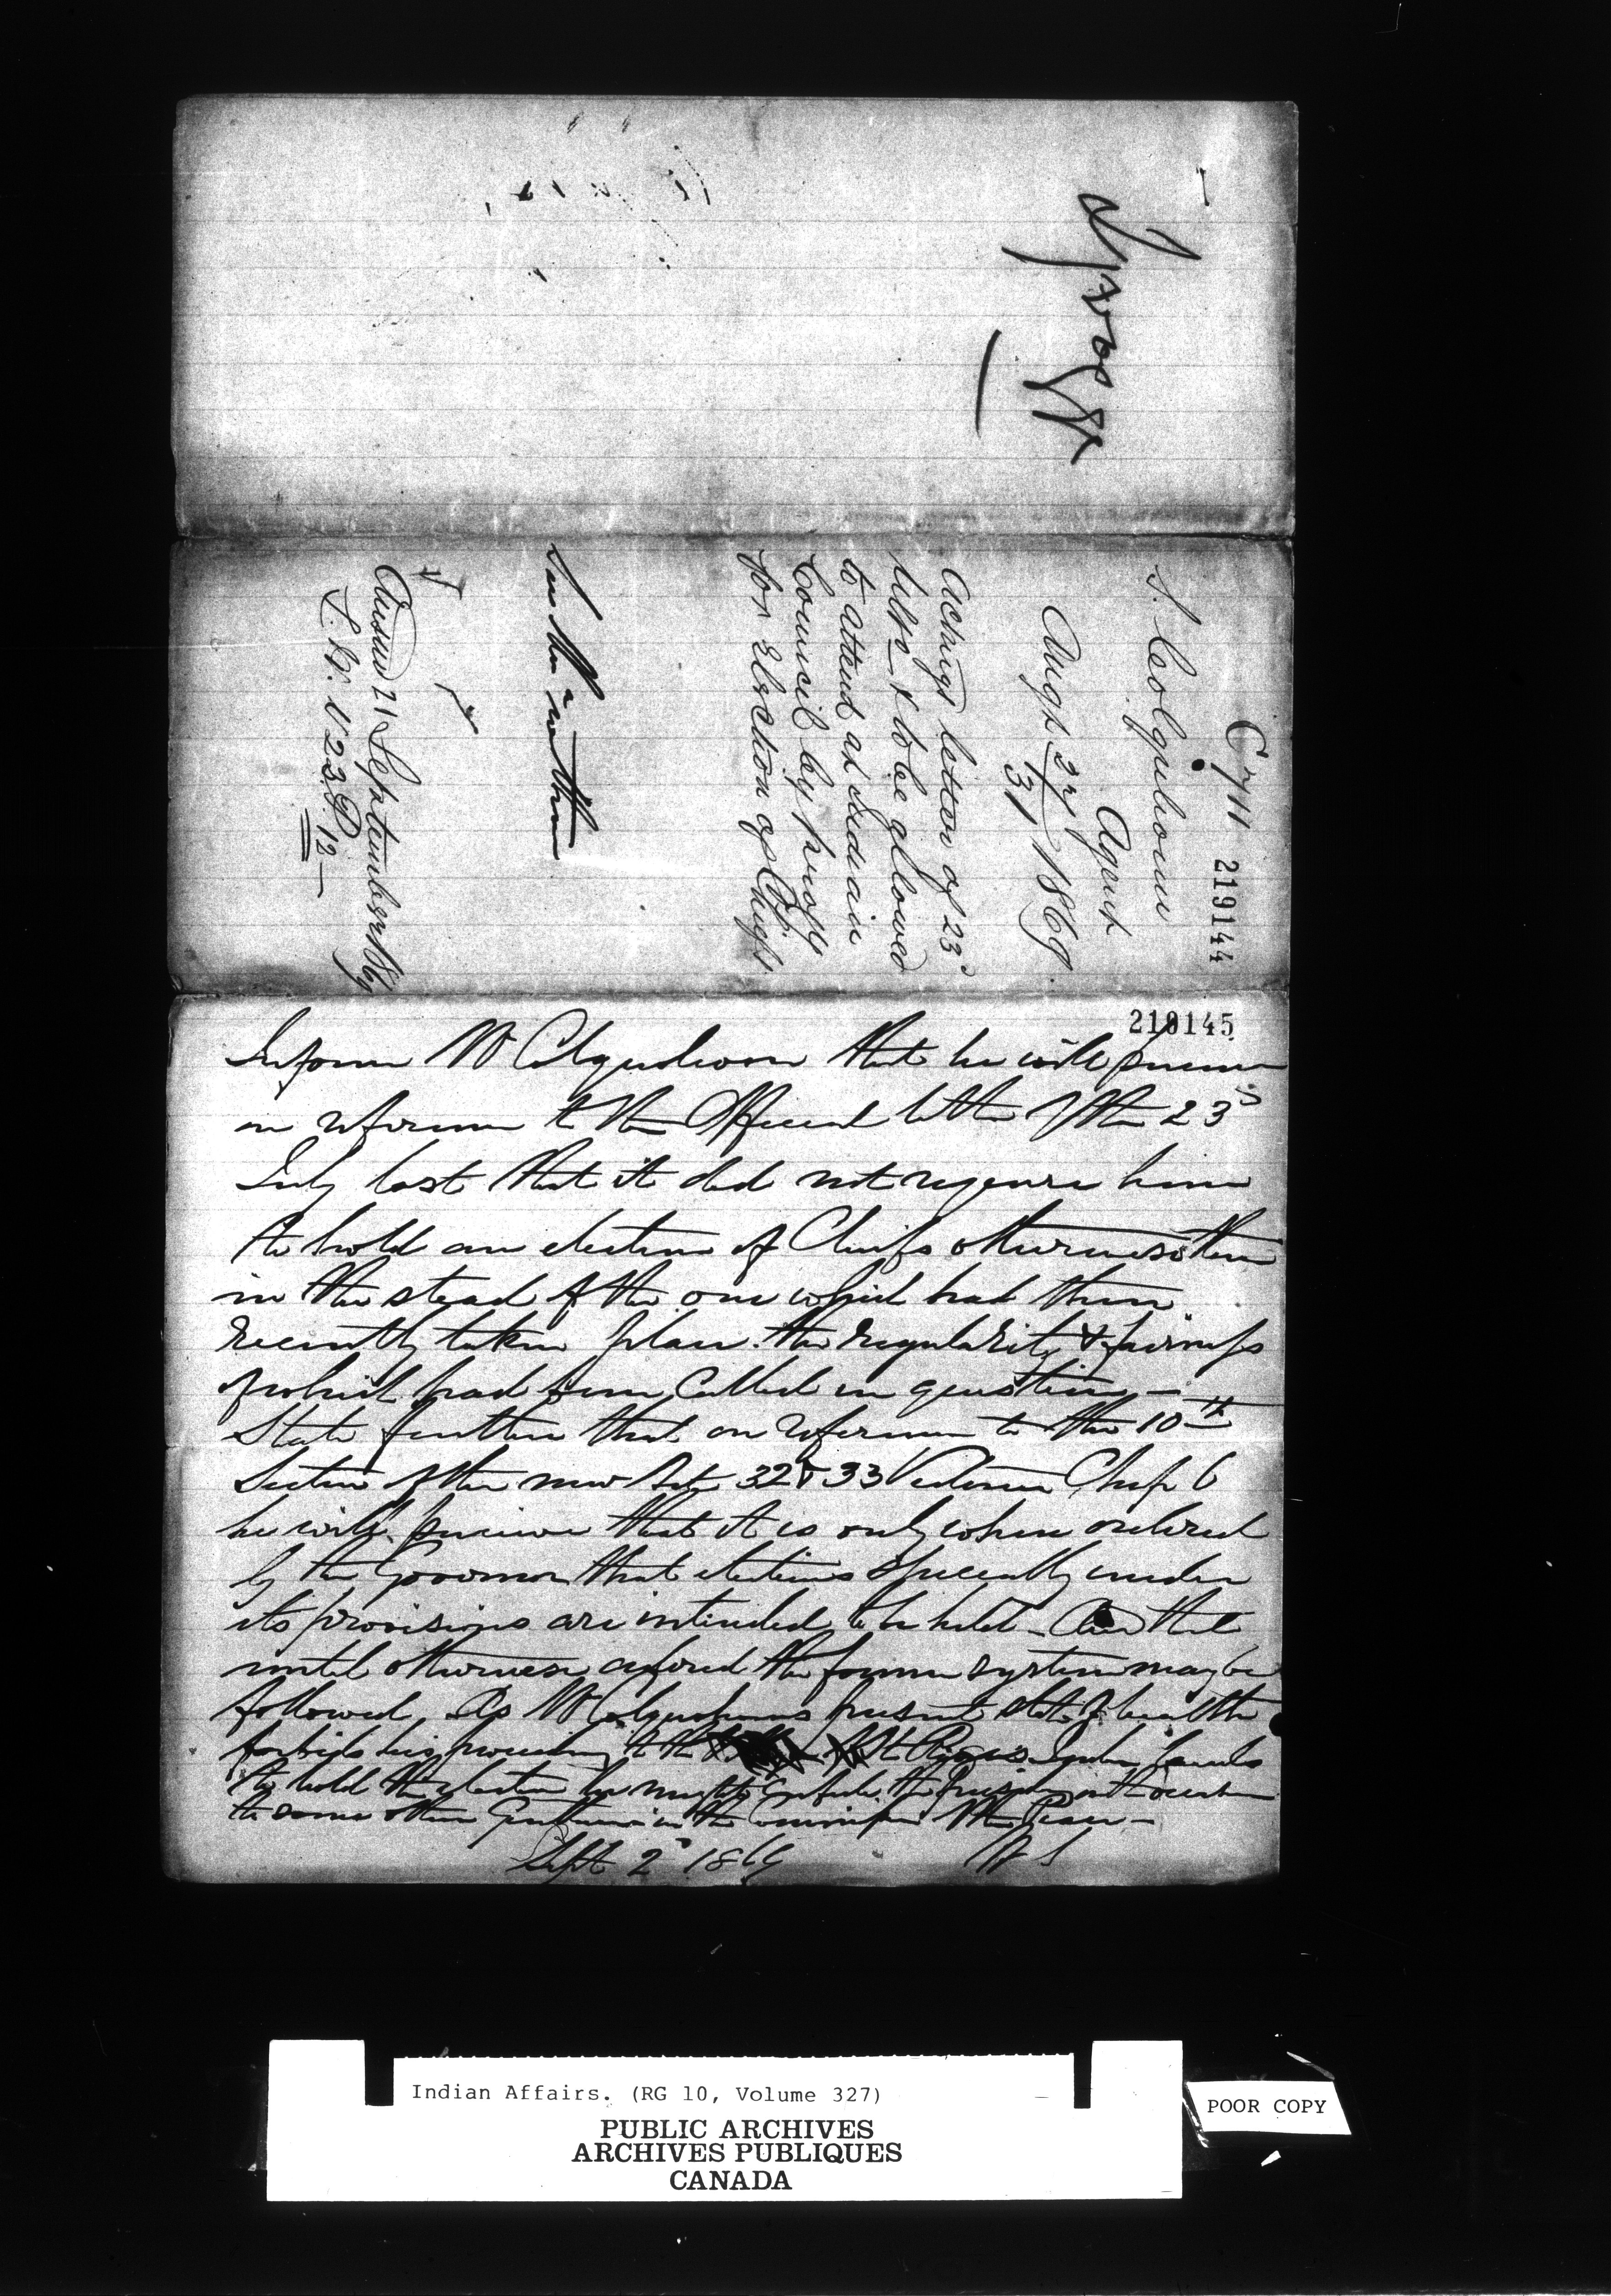 Sprogge
C 711
219144
S. Colquhoun
Agent
Augt. 27/31 1869
Acknigs letter of 23d
Ulto & to be allowed
to attend an Indian
Council by proxy
for Election of Chiefs
See the within
Answd 21 September 1869
L. B. No 23. P. 12
219145
Inform Mr Colquhoun that he will perceive
on reference to the Official letter of the 23d
July last that it did not require him
to hold an election of Chiefs otherwise than
in the stead of the one which had then
recently taken place. the regularity & fairness
of which had been Called in question—
State further that on reference to the 10th
Section of the new Act 32 & 33 Victoria Chap 6
he will perceive that it is only when ordered
by the Governor that elections specially under
its provisions are intended to be held_ And that
until otherwise ordered the former system may be
followed. As Mr Colquhouns present state of health
forbids his proceeding to the St Regis Indian lands
to hold the election he might confide the Presiding on the occasion
to some other Gentleman in the Commission of the Peace—
Sept 2d 1869 W S
Indian Affairs. (RG 10, Volume 327)
PUBLIC ARCHIVES
ARCHIVES PUBLIQUES
CANADA
POOR COPY